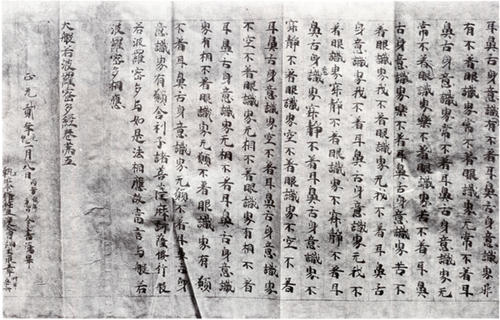 耳鼻舌身意識界有不着耳鼻舌身意識界非
有不着眼識界常不着眼識界无常不着耳
鼻舌身意識界常不着耳鼻舌身意識界无
常不着眼識界樂不着眼識界苦不着耳鼻
舌身意識界樂不着耳鼻舌身意識界苦不
着眼識界我不着眼識界无我不着耳鼻舌
身意識界我不着耳鼻舌身意識界无我不
着眼識界寂静不着眼識界不寂静不着耳
鼻舌身意識界寂静不着耳鼻舌身意識界不
寂静不着眼識界空不着眼識界不空不着
耳鼻舌身意識界空不着耳鼻舌身意識界
不空不着眼識界无相不着眼識界有相不着
耳鼻舌身意識界无相不着耳鼻舌身意識
界有相不着眼識界无願不着眼識界有願
不着耳鼻舌身意識界无願不着耳鼻舌身
意識界有願舍利子諸菩薩摩訶薩修行般
若波羅蜜多与如是法相應故當言与般若
波羅蜜多相應
大般若波羅蜜多經卷第五
正元貳年二月八日